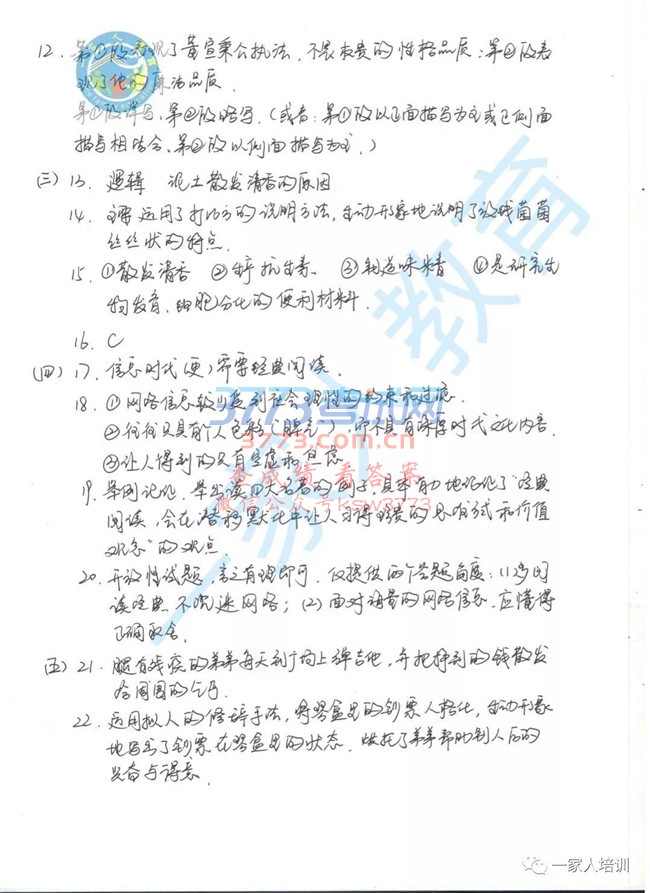 12. 第①段表现了黄宣秉公执法、不畏权贵的性格品质；第②段表
现了他的廉洁品质.
第①段详写，第②段略写.（或者：第①段以正面描写为主或正侧面
描写相结合、第②段以侧面描写为主.）
(三) 13. 逻辑 泥土散发清香的原因
14. 主要运用了打比方的说明方法，生动形象地说明了放线菌菌
丝丝状的特点.
15. ①散发清香 ②产抗生素 ③制造味精 ④是研究生
物发育、细胞分化的便利材料.
16. C
(四) 17. 信息时代(更)需要经典阅读.
18. ①网络信息较少受到社会理性的约束和过滤
②往往只具有个人色彩("脾气")，而不具有深厚时代文化内容.
③让人得到的只有空虚和焦虑
19. 举例论证. 举出读四大名著的例子，具体有力地论证了"经典
阅读，会在潜移默化中让人习得宝贵的思维方式和价值
观念"的观点.
20. 开放性试题，言之有理即可. 仅提供两个答题角度：(1)多阅
读经典，不沉迷网络；(2)面对海量的网络信息，应懂得
正确取舍.
(五) 21. 腿有残疾的弟弟每天到广场上弹吉他，并把挣到的钱散发
给周围的乞丐.
22. 运用拟人的修辞手法，将琴盒里的钞票人格化，生动形象
地写出了钞票在琴盒里的状态，烘托了弟弟帮助别人后的
兴奋与得意.
一家人教育
3773考试网
3773.com.cn
查成绩 看答案
微信公众号ksw3773
一家人培训